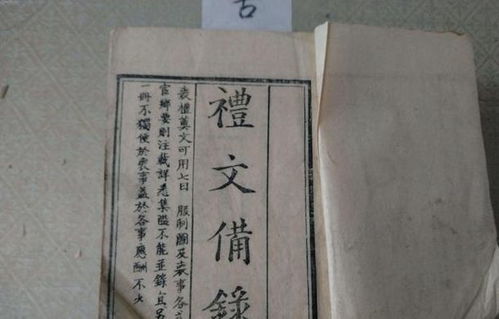 古
禮文備錄
喪禮奠文可用七日 服制圖及喪事各
官鄉要則注載詳悉集隘不能並錄宜另
一冊不獨便於喪事益於各事應酬不